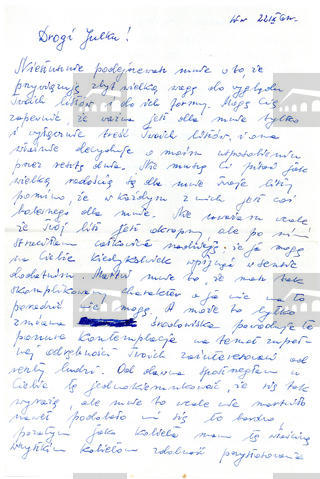 W-w 22.IX.64r.
Drogi Julku!
Niesłusznie podejrzewasz mnie o to, że
przywiązuję zbyt wielką wagę do wyglądu
Twoich listów i do ich formy. Mogę Cię
zapewnić, że ważna jest dla mnie tylko
i wyłącznie treść Twoich listów, i ona
właśnie decyduje o moim usposobieniu
przez resztę dnia. Nie muszę Ci pisać jak
wielką radością są dla mnie Twoje listy
pomimo, że w każdym z nich jest coś
bolesnego dla mnie. Nie uważam wcale
że Twój list jest okropny, ale po nim
straciłam całkowicie nadzieję, że ja mogę
na Ciebie kiedykolwiek wpłynąć w sensie
dodatnim. Martwi mnie to, że masz tak
skomplikowany charakter a ja nic na to
poradzić nie mogę. A może to tylko
zmiana środowiska powoduje te
ponure kontemplacje na temat zupeł-
nej odrębności Twoich zainteresowań od
reszty ludzi. Od dawna spostrzegłam w
Ciebie tę jednostkowość, że się tak
wyrażę, ale mnie to wcale nie martwiło
nawet podobało mi się to bardzo,
poza tym jako kobieta mam tę właściwą
wszystkim kobietom zdolność przystosowania